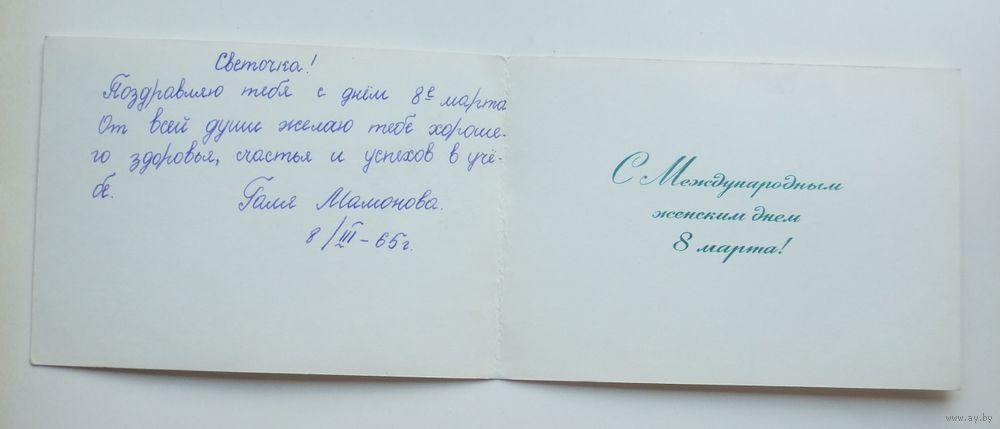 Светочка!
Поздравляю тебя с днём 8е марта
От всей души желаю тебе хороше-
го здоровья, счастья и успехов в учё-
бе.
Галя Мамонова.
8/III – 65 г.
С Международным
женским днем
8 марта!
www.ay.by